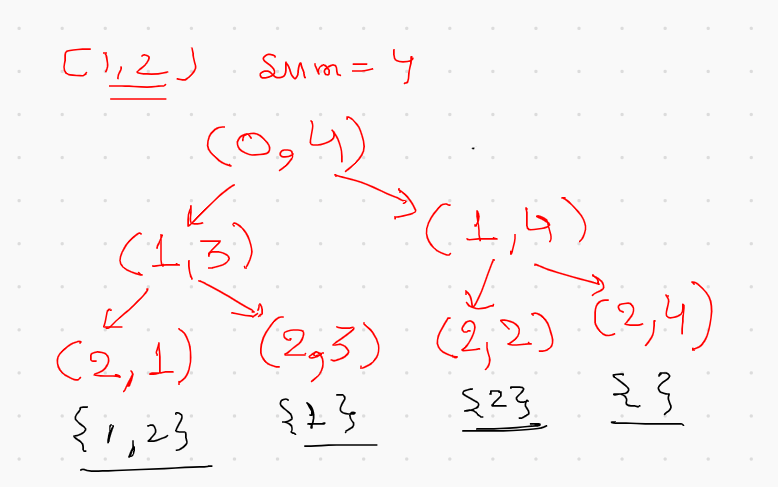 [1,2] Sum = 4
(0,4)
(1,3) (1,4)
(2,1) (2,3) (2,2) (2,4)
{1,2} {1} {2} { }